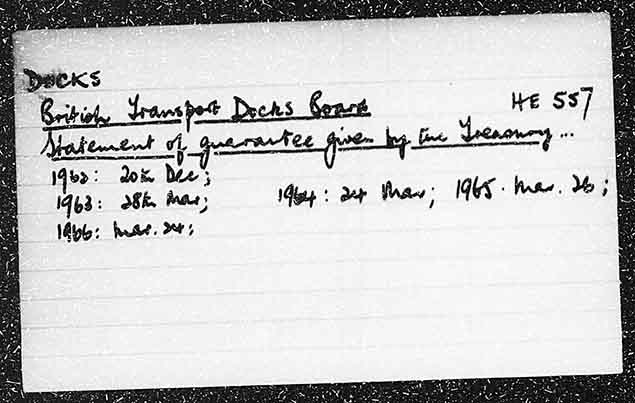 DOCKS
British Transport Docks Board HE 557
Statement of guarantee given by the Treasury ...
1962: 20th Dec;
1963: 28th Mar; 1964: 24 Mar; 1965. Mar. 26;
1966: Mar. 24;